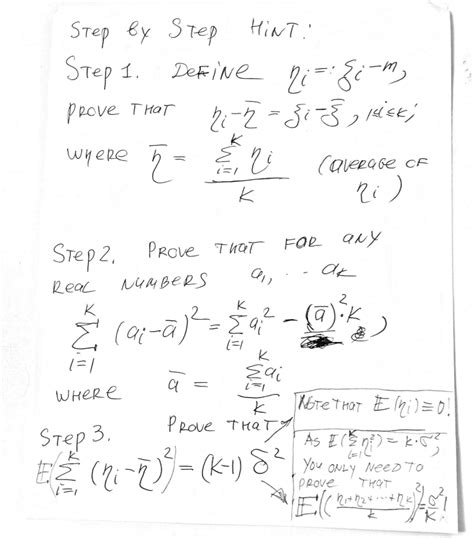 STEP BY STEP HINT:
STEP 1. DEFINE η_i =: ξ_i - m,
PROVE THAT η_i - η̄ = ξ_i - ξ̄, 1≤i≤k,
WHERE η̄ = (∑_{i=1}^{k} η_i) / k (AVERAGE OF η_i)
STEP 2. PROVE THAT FOR ANY
REAL NUMBERS a_1, ... a_k
∑_{i=1}^{k} (a_i - ā)² = ∑_{i=1}^{k} a_i² - (ā)²·k,
WHERE ā = (∑_{i=1}^{k} a_i) / k
STEP 3. PROVE THAT
E(∑_{i=1}^{k} (η_i - η̄)²) = (k-1) σ²
NOTE THAT E(η_i) ≡ 0!
AS E(∑_{i=1}^{k} η_i²) = k·σ²,
YOU ONLY NEED TO
PROVE THAT
E((η_1+η_2+...+η_k)/k)² = σ²/k!